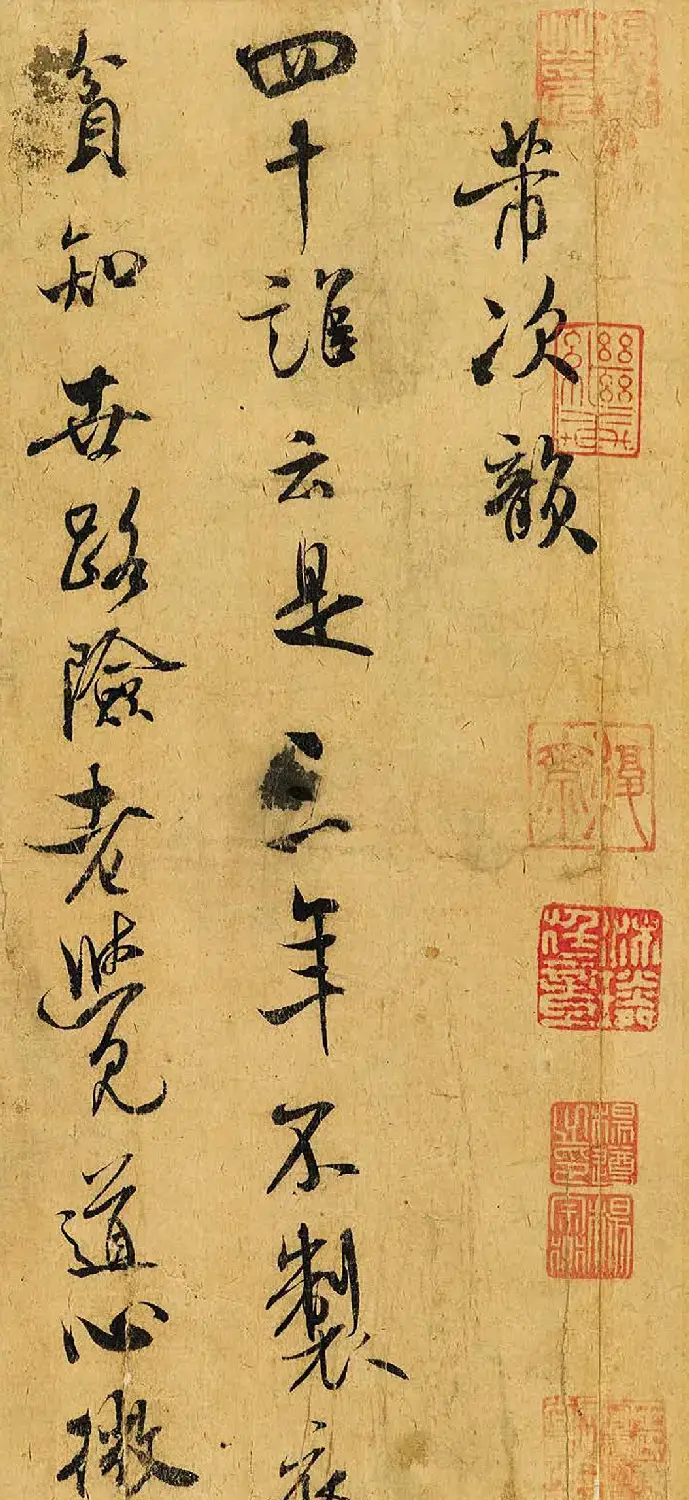 芾次韻
四十誰云是三年不製衣
貧知世路險老覺道心微